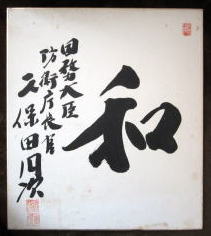 和
国務大臣
防衛庁長官
久保田円次